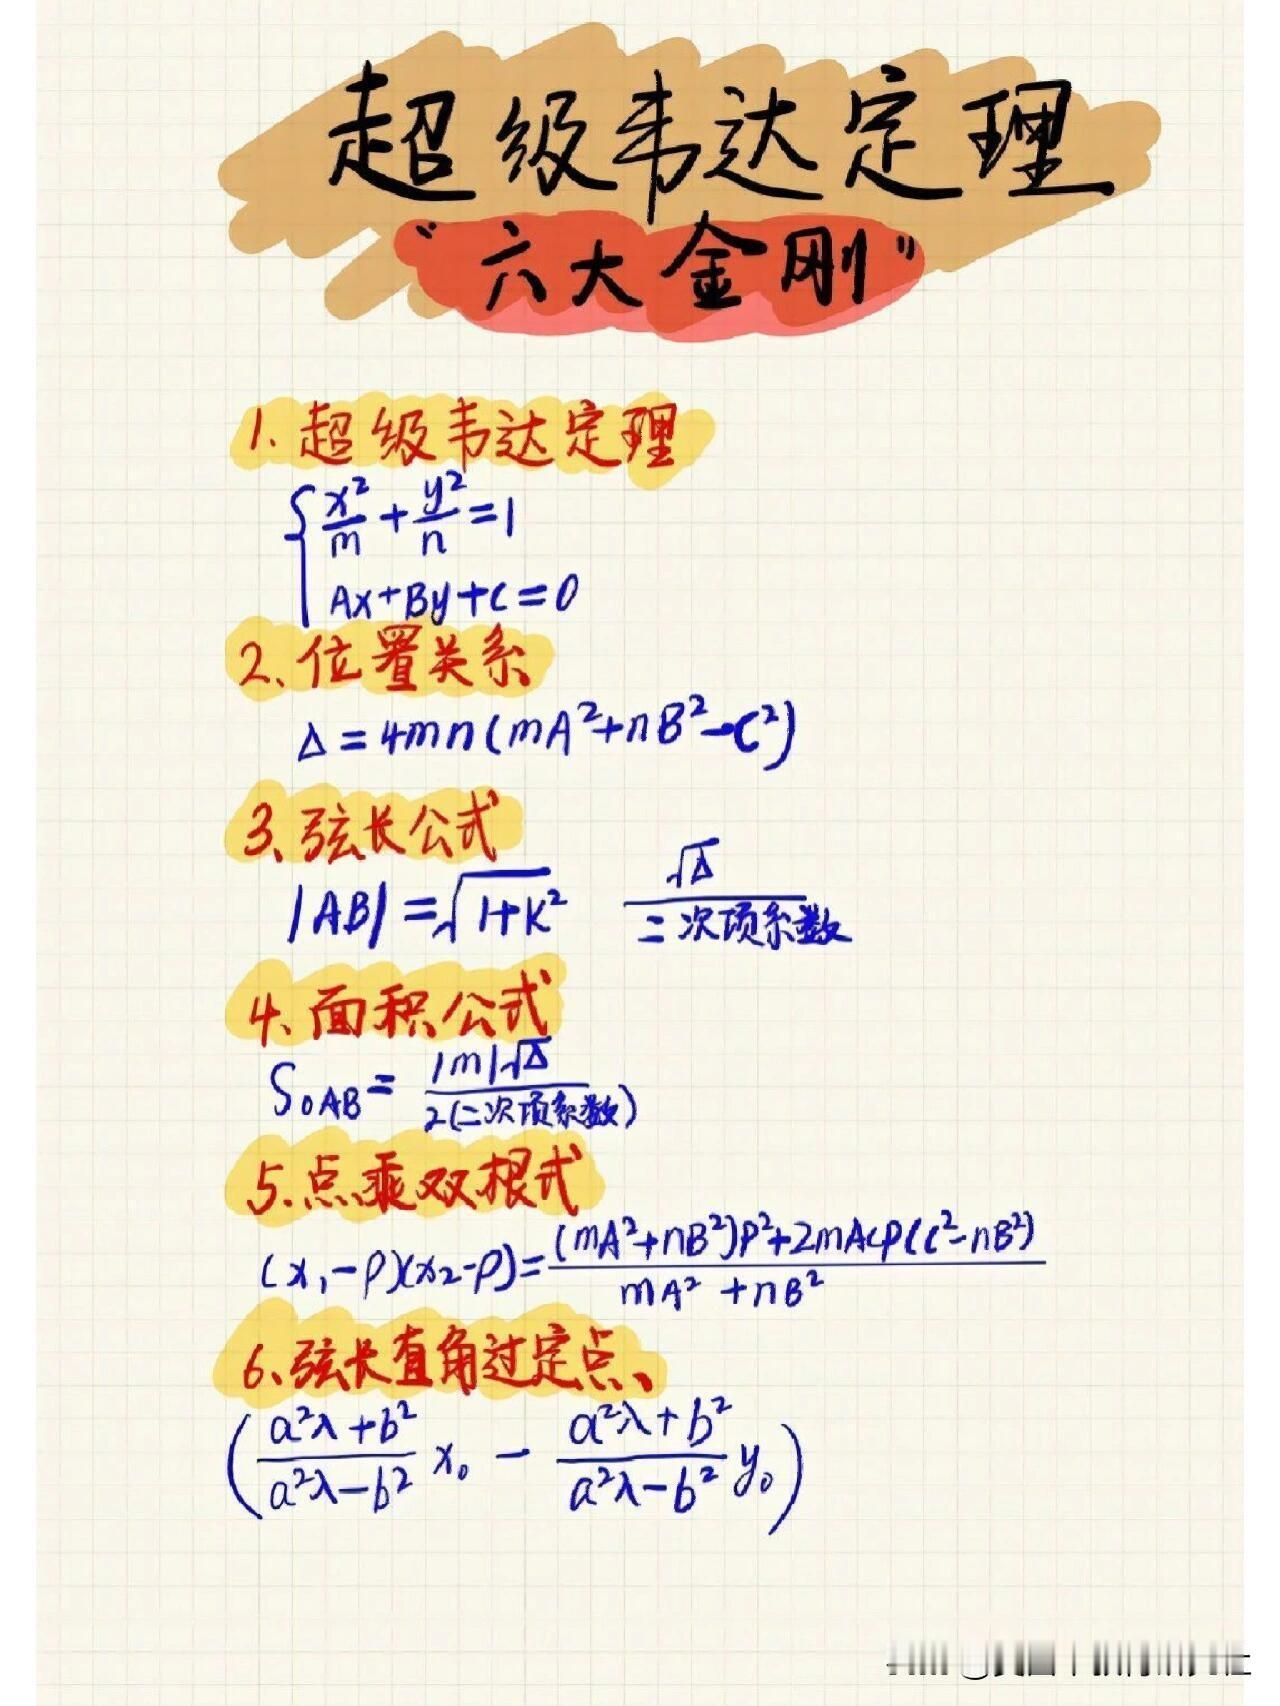 超级韦达定理
“六大金刚”
1.超级韦达定理
x²/m + y²/n = 1
Ax+By+C=0
2.位置关系
Δ=4mn(mA²+nB²-C²)
3、弦长公式
|AB|=√(1+K²) √Δ/二次项系数
4、面积公式
S₀AB=|m|√Δ/2(二次项系数)
5.点乘双根式
(x₁-p)(x₂-p)=(mA²+nB²)P²+2mAcp(c²-nB²)/mA²+nB²
6、弦长直角过定点、
(a²λ+b²/a²λ-b² x₀ - a²λ+b²/a²λ-b² y₀)